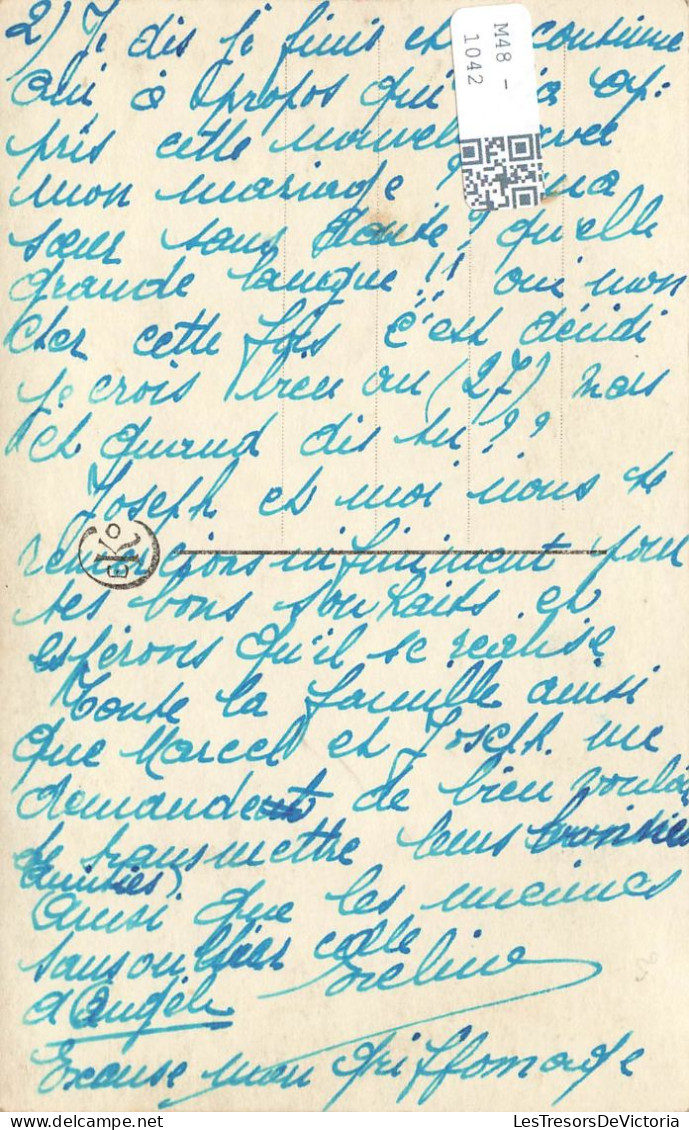 2) Je dis je finis et continue
Qui à propos qui a ap-
pris cette nouvelle avec
mon mariage ? ma
sœur sans doute ? quelle
grande langue !! oui mon
cher cette fois c'est décidi
je crois bien au (27) mars
et quand dis tu ??
Joseph et moi nous te
remercions infiniment pour
tes bons souhaits et
espérons qu'il se realise
Toute la famille ainsi
que Marcel et Joseph me
demandent de bien vouloir
te transmettre leurs bonnes
amities
Ainsi que les miennes
sans oublier celle
d'Angèle
Excuse mon griffomage
M48 -
1042
LesTresorsDeVictoria.com